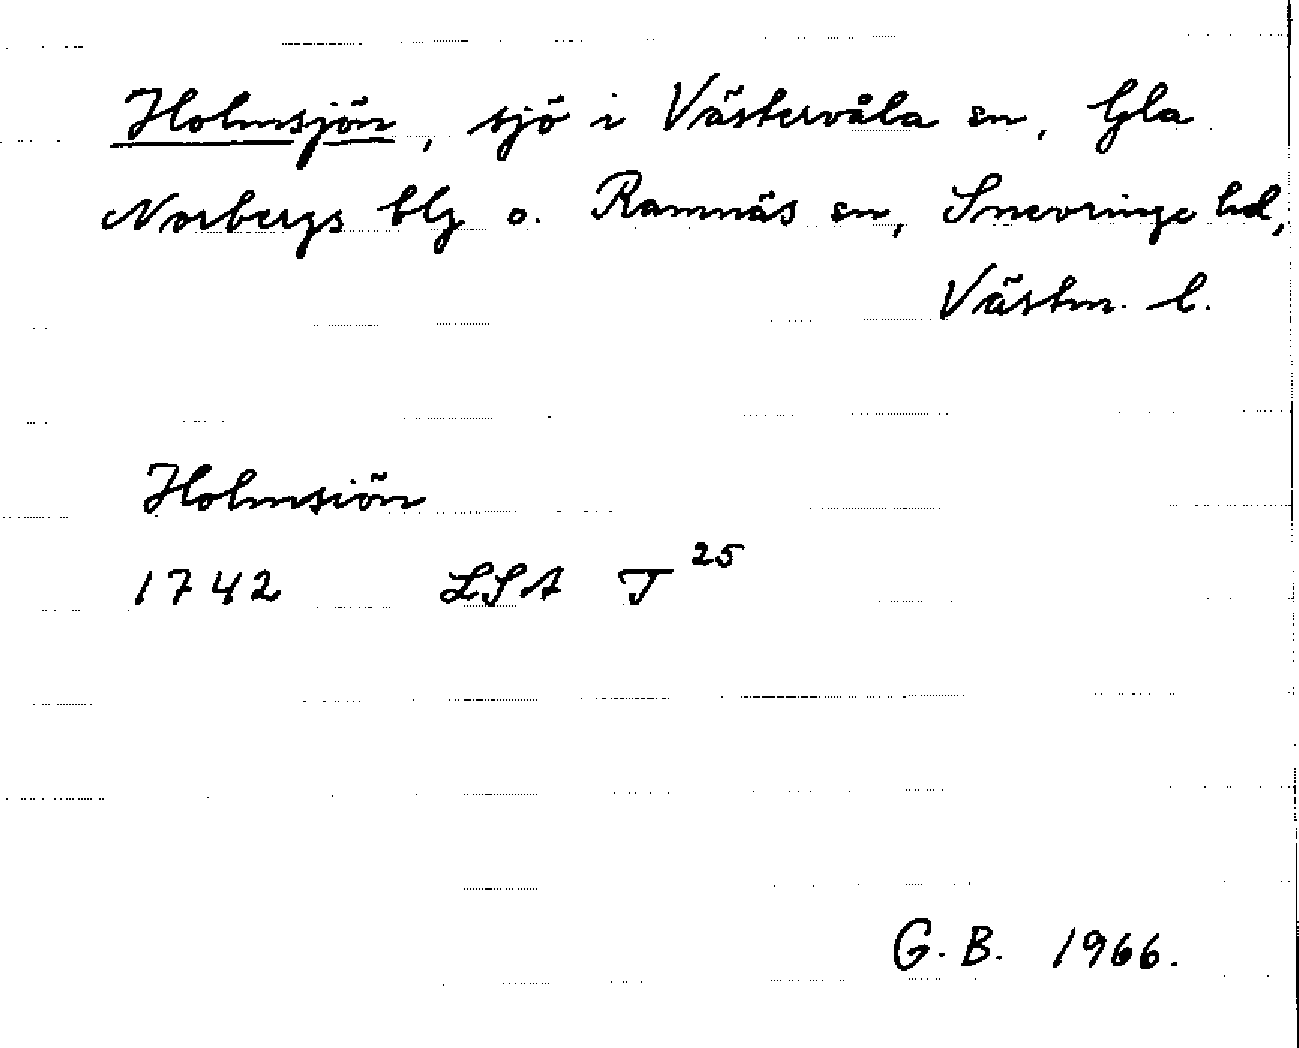 Holmsjön, sjö i Västervåla sn, Gla
Norbergs blg o. Ramnäs sn, Snevringe hd,
Västm. l.
Holmsiön
1742 LSA T 25
G. B. 1966.